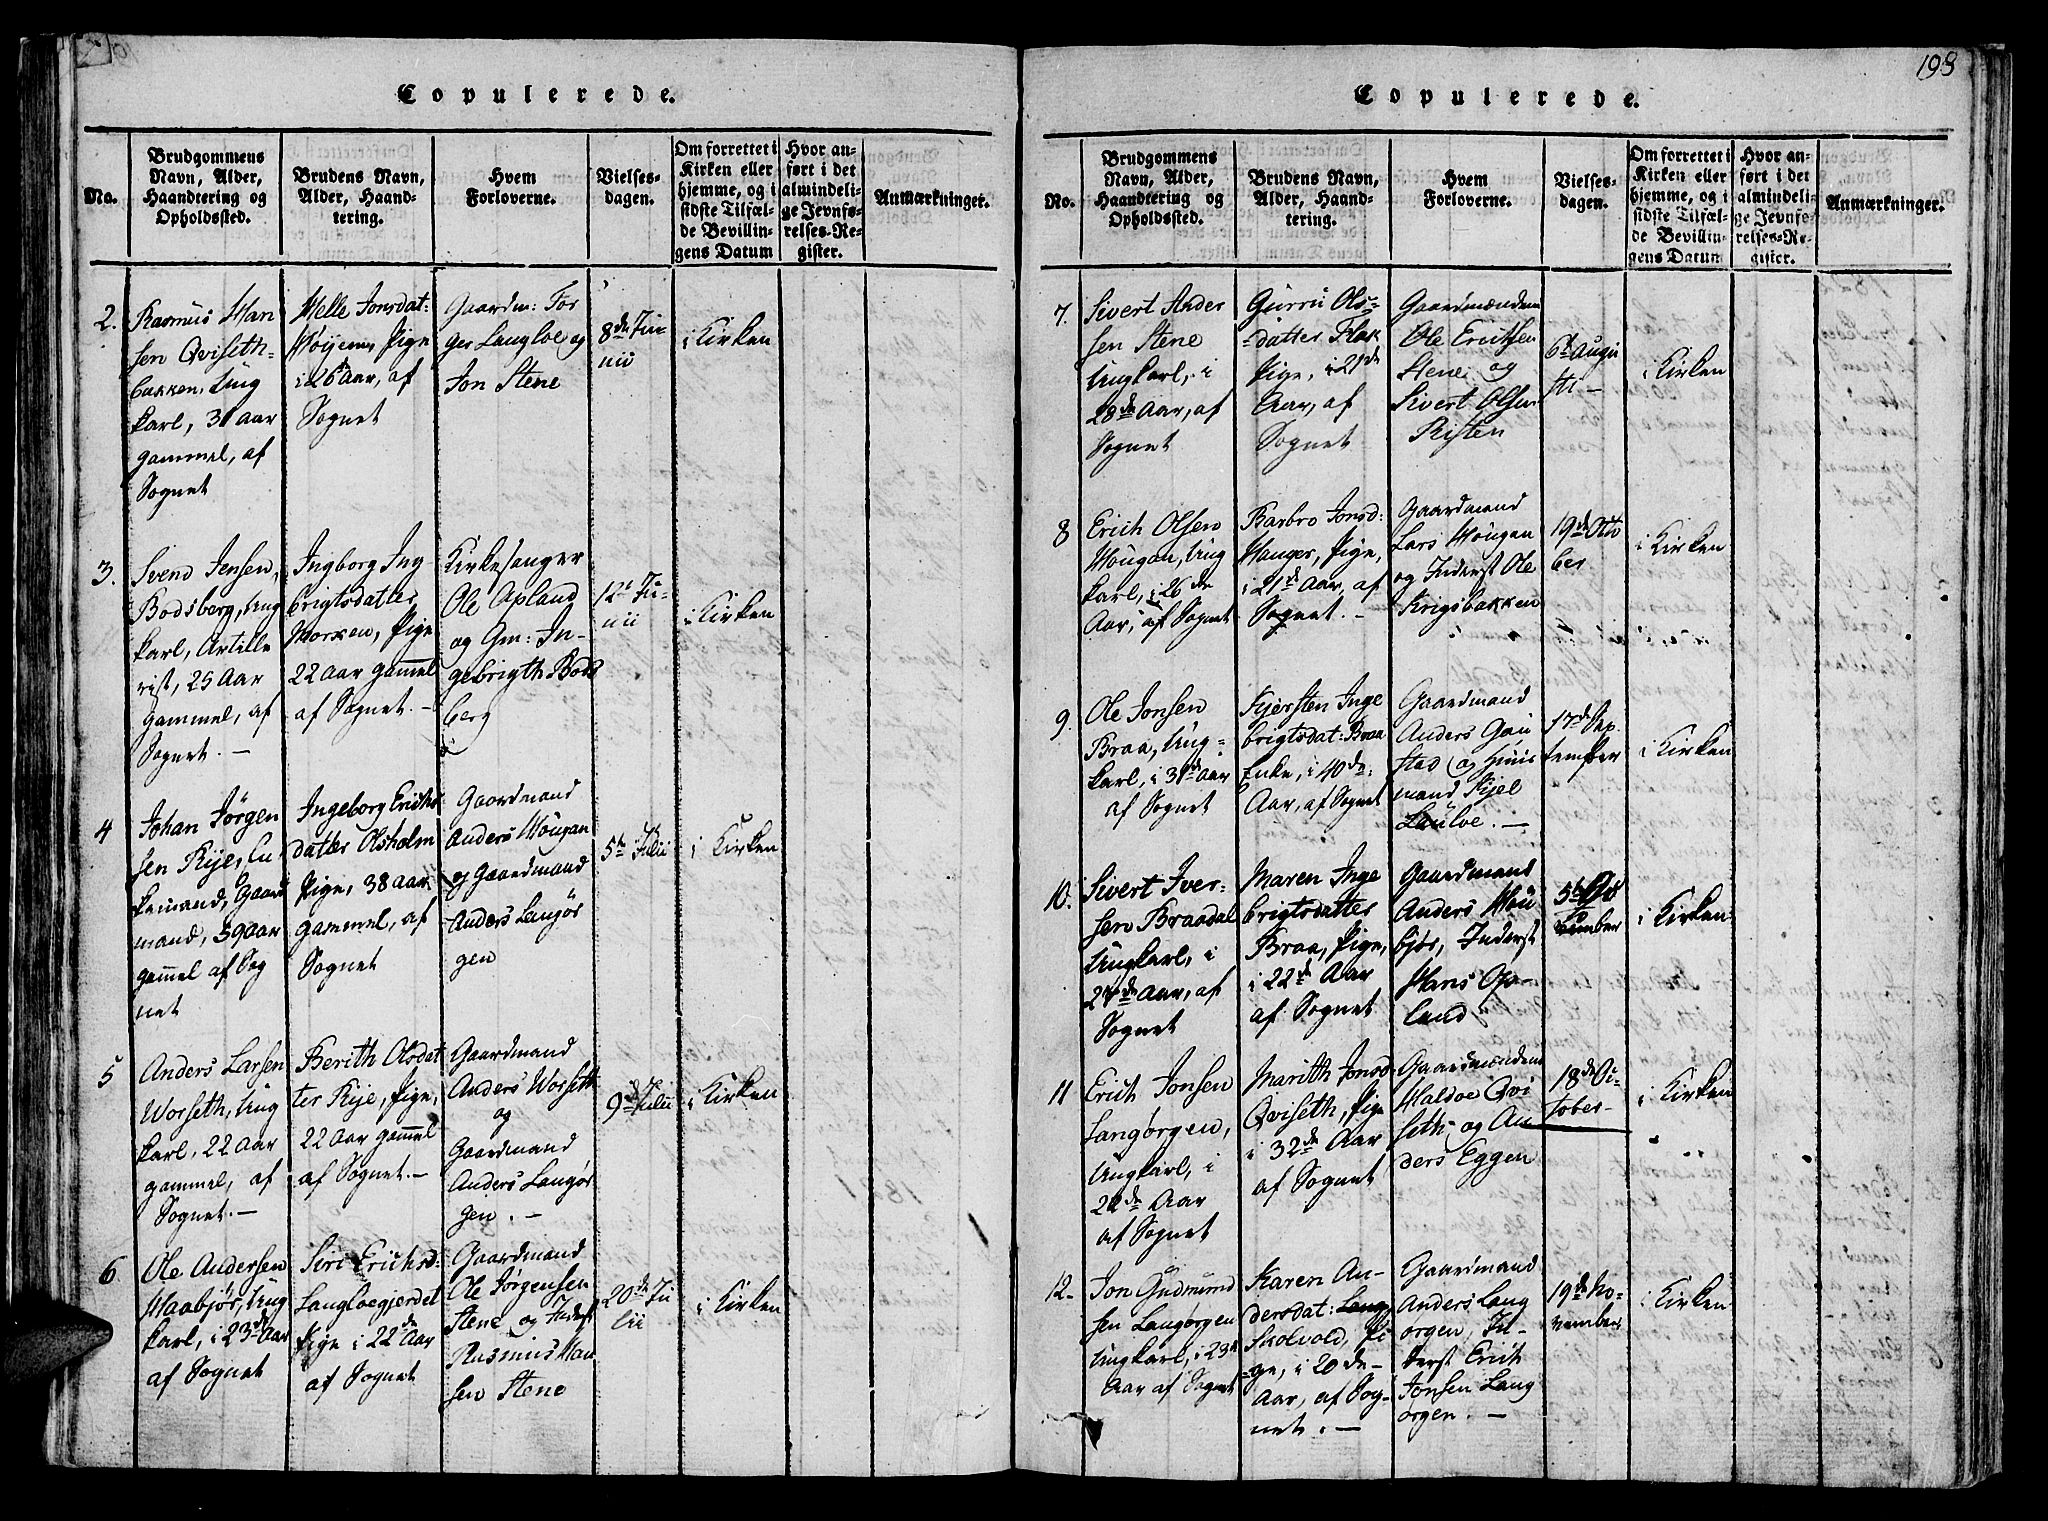 198
Copulerede.
No.
Brudgommens
Navn, Alder,
Haandtering og
Opholdssted.
Brudens Navn,
Alder, Haand-
tering.
Hvem
Forloverne.
Vielses-
dagen.
Om forrettet i
Kirken eller
hjemme, og i
sidste Tilfæl-
de Bevillin-
gens Datum
Hvor an-
ført i det
almindeli-
ge Jevnfø-
relses-Re-
gister.
Anmærkninger.
2.
Rasmus Han
sen Qviseth-
bakken, Ung
karl, 31 Aar
gammel, af
Sognet
Melle Jonsdat:
Høijem, Pige
i 26 Aar, af
Sognet
Gaardm: For
ger Langloe og
Jon Stene
8de Ju
nii
i Kirken
3.
Svend Jensen
Bodsberg, Ung
karl, Artille
rist, 25 Aar
gammel, af
Sognet. —
Ingborg Ing
brigtsdatter
Morken, Pige
22 Aar gammel
af Sognet. —
Kirkesanger
Ole Apland
og Gm: In-
gebrigth Bods
berg
12te Ju-
nii
i Kirken
4
Johan Jørgen
sen Rije, En
kemand, Gaard
mand, 59 Aar
gammel af Sog
net
Ingeborg Erichs
datter Olsholm
Pige, 38 Aar
gammel, af
Sognet
Gaardmand
Anders Hougan
og Gaardmand
Anders Langør
gen
5te Julii
i Kirken
5
Anders Larsen
Worseth, Ung
karl, 22 Aar
gammel, af
Sognet. —
Berith Olsdat
ter Rije, Pige,
22 Aar gammel
af Sognet. —
Gaardmand
Anders Worseth
og
Gaardmand
Anders Langør
gen. —
9de Julii
i Kirken
6
Ole Andersen
Haabjør, Ung
karl, i 23de Aar
af Sognet
Siri Erichsd:
Langloegjerdet
Pige i 22de Aar
af Sognet
Gaardmand
Ole Jørgensen
Stene og Inderst
Rasmus Han
sen Stene
20de Ju
lii
i Kirken
Copulerede.
No.
Brudgommens
Navn, Alder,
Haandtering og
Opholdssted.
Brudens Navn,
Alder, Haand-
tering.
Hvem
Forloverne.
Vielses-
dagen.
Om forrettet i
Kirken eller
hjemme, og i
sidste Tilfæl-
de Bevillin-
gens Datum
Hvor an-
ført i det
almindeli-
ge Jevnfø-
relses-Re-
gister.
Anmærkninger.
7.
Sivert Ander
sen Stene
Ungkarl, i
28de Aar, af
Sognet
Gurru Ols-
datter Flak
Pige, i 21de
Aar, af
Sognet
Gaardmændene
Ole Erichsen
Stene og
Sivert Olsen
Risten
6te Augu
sti —
i Kirken
8
Erich Olsen
Hougan, Ung
karl, i 26de
Aar, af Sognet
Barbro Jonsd:
Hanger, Pige,
i 21de Aar, af
Sognet. —
Gaardmand
Lars Hougan
og Inderst Ole
Krigsbakken
19de Octo
ber
i Kirken
9.
Ole Jonsen
Braa, Ung-
karl, i 31de Aar
af Sognet
Kjersten Inge
brigtsdat: Braa
Enke, i 40de
Aar, af Sognet
Gaardmand
Anders Gau
stad og Huus
mand Kjel
Lauloe. —
17de Sep
tember
i Kirken
10.
Sivert Iver-
sen Braadal
Ungkarl, i
24de Aar, af
Sognet
Maren Inge
brigtsdatter
Braa, Pige,
i 22de Aar
af Sognet
Gaardmand
Anders Hou
bjør, Inderst
Hans Op-
land
5te
i Kirken
11
Erich Jonsen
Langørgen,
Ungkarl, i
22de Aar
af Sognet
Marith Jonsd
Qviseth, Pige
i 32de Aar
af Sognet
Gaardmændene
Haldoe Qvi
seth og An
ders Eggen
18de Oc-
tober
i Kirken
12.
Jon Gudmund
sen Langørgen
Ungkarl, i 23de
Aar af Sognet
Karen An-
dersdat: Lang
Skolvold, Pi
ge, i 20de
Aar, af Sog-
net. —
Gaardmand
Anders Lang
ørgen, In-
derst Erich
Jonsen Lang
ørgen. —
19de No-
vember
i Kirken